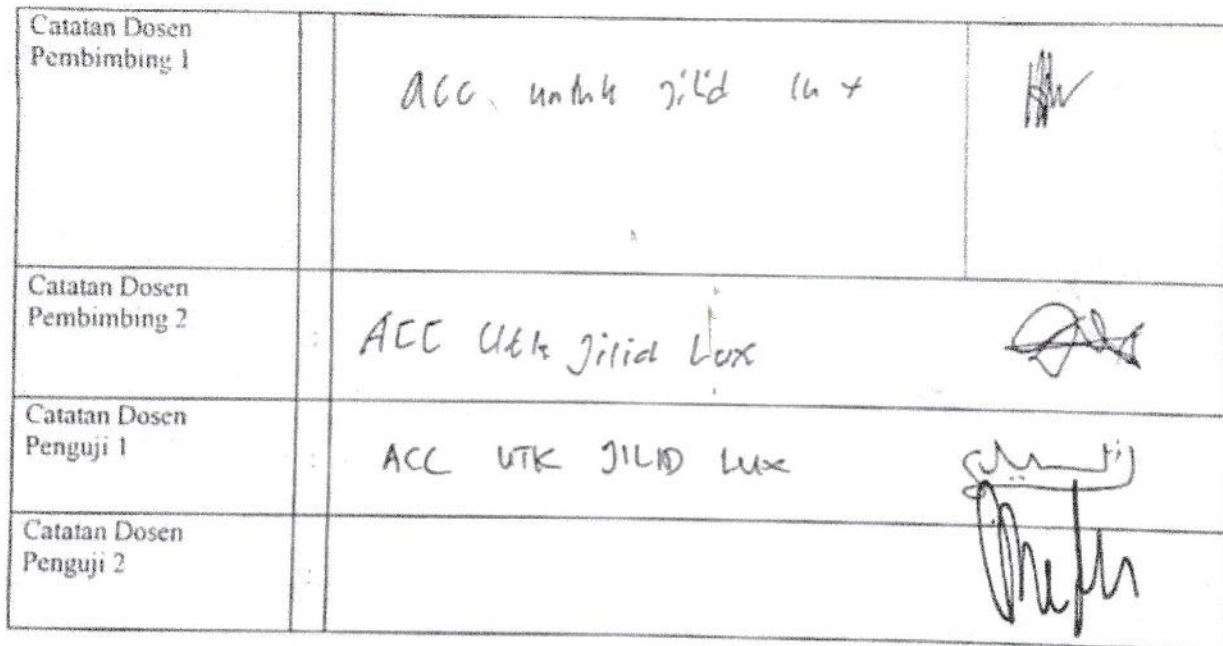 Catatan Dosen
Pembimbing 1
ACC untuk jilid lux
Catatan Dosen
Pembimbing 2
:
ACC Utk Jilid Lux
Catatan Dosen
Penguji 1
:
ACC UTK JILID Lux
Catatan Dosen
Penguji 2
: